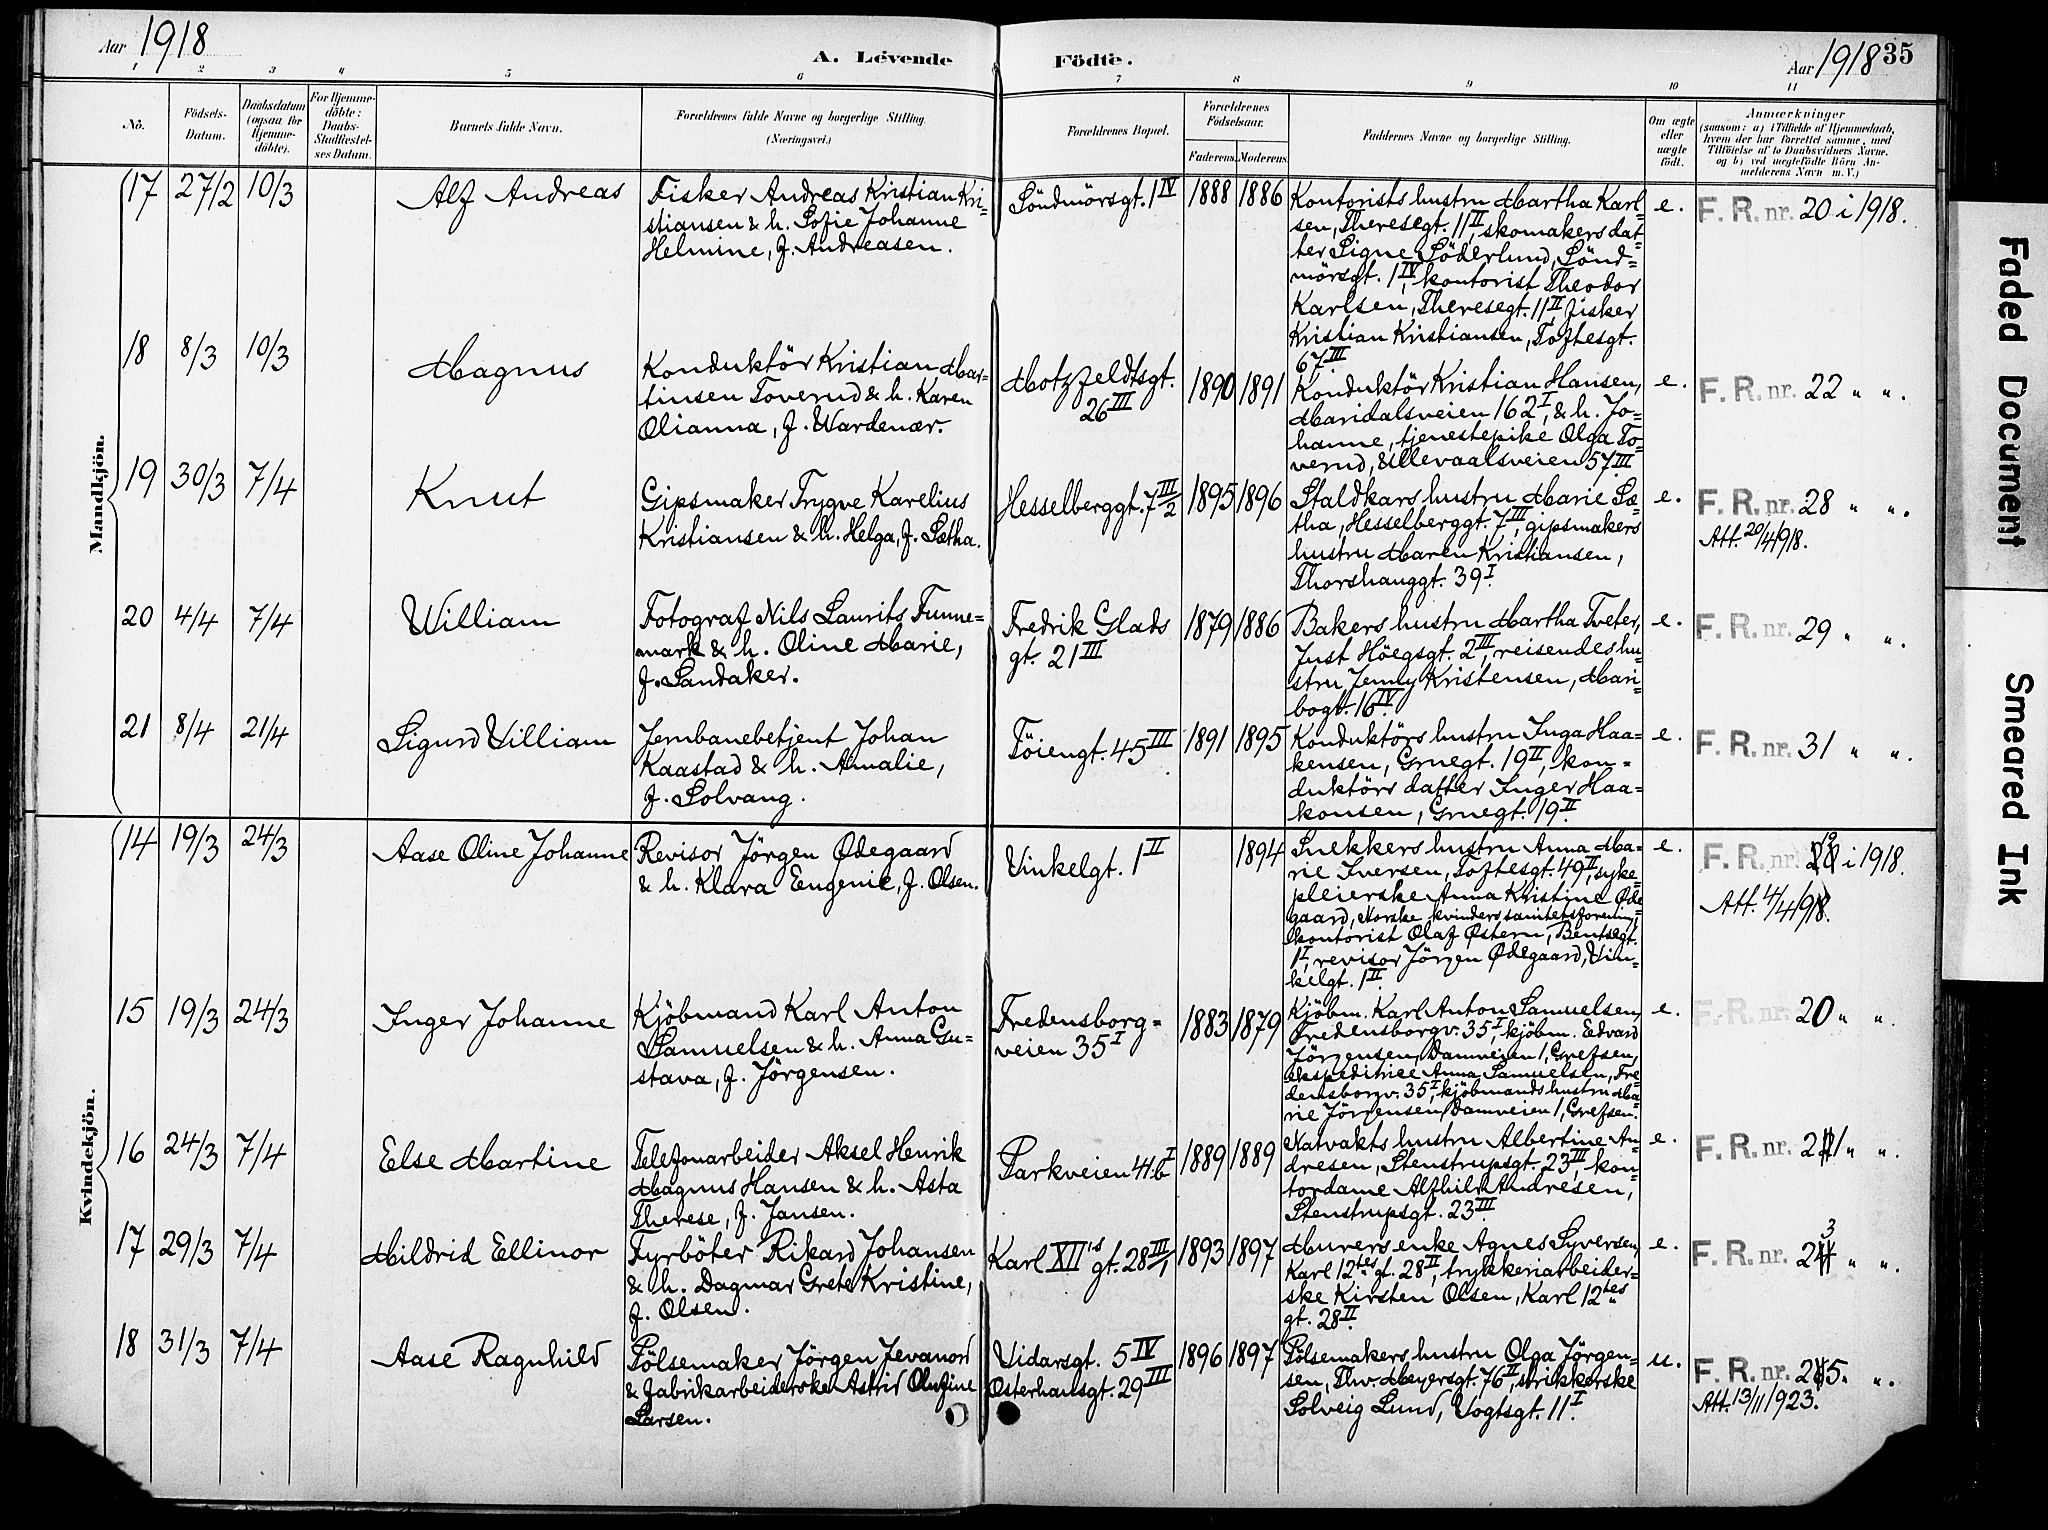 Aar 1918
A. Levende
Födte.
Aar 1918 35
1 2 3 4 5 6 7 8 9 10 11
No.
Födsels-
Datum.
Daabsdatum
(ogsaa for
Hjemme-
döbte).
For Hjemme-
döbte:
Daabs-
Stadfæstel-
ses Datum.
Barnets fulde Navn.
Forældrenes fulde Navne og borgerlige Stilling.
(Næringsvei.)
Forældrenes Bopæl.
Forældrenes
Födselsaar.
Faderens. Moderens.
Faddernes Navne og borgerlige Stilling.
Om ægte
eller
uægte
födt.
Anmærkninger
(saasom: a) i Tilfælde af Hjemmedaab,
hvem der har forrettet samme, med
Tilföielse af to Daabsvidners Navne,
og b) ved uægtefödte Börn An-
melderens Navn m. V.)
Mandkjön.
17 27/2 10/3
Alf Andreas
Fisker Andreas Kristian Kri-
stiansen & h. Sofie Johanne
Helmine, f. Andreasen.
Söndmörsgt. 1 IV
1888 1886
Kontorists hustru Martha Karl-
sen, Theresegt. 11 II, skomakers dat-
ter Signe Söderlund, Sönd-
mörsgt. 1 IV, kontorist Theodor
Karlsen, Theresegt. 11 II fisker
Kristian Kristiansen, Toftesgt.
67 III
e.
F. R. nr. 20 i 1918.
18 8/3 10/3
Magnus
Konduktör Kristian Mar-
tinsen Toverud & h. Karen
Olianna, f. Wardenær.
Motzfeldtsgt.
26 III
1890 1891
Konduktör Kristian Hansen,
Maridalsveien 162 I, & h. Jo-
hanne, tjenestepike Olga To-
verud, Ullevaalsveien 57 III
e.
F. R. nr. 22 " ".
19 30/3 7/4
Knut
Gipsmaker Trygve Karelius
Kristiansen & h. Helga, f. Sætha.
Hesselberggt. 7 III/2
1895 1896
Staldkars hustru Marie Sæ-
tha, Hesselberggt. 7 III, gipsmakers
hustru Maren Kristiansen,
Thorshauggt. 39 I.
e.
F. R. nr. 28 " ".
Att. 20/4 1918.
20 4/4 7/4
William
Fotograf Nils Laurits Funne-
mark & h. Oline Marie,
f. Sandaker.
Fredrik Glads
gt. 21 III
1879 1886
Bakers hustru Martha Tveter,
Just Höegsgt. 2 III, reisendes hu-
stru Jenny Kristensen, Mari-
bogt. 16 IV.
e.
F. R. nr. 29 " ".
21 8/4 21/4
Sigurd William
Jernbanebetjent Johan
Kaastad & h. Amalie,
f. Solvang.
Töiengt. 45 III
1891 1895
Konduktörs hustru Inga Haa-
kensen, Gruegt. 19 II, kon-
duktörs datter Inger Haa-
konsen, Gruegt. 19 II
e.
F. R. nr. 31 " ".
Kvindekjön.
14 19/3 24/3
Aase Oline Johanne
Revisor Jörgen Ødegaard
& h. Klara Eugenie, f. Olsen.
Vinkelgt. 1 II
1894
Snekkers hustru Anna Ma-
rie Iversen, Toftesgt. 49 II, syke-
pleierske Anna Kristine Øde
gaard, Norske kvinders sanitetsforening,
kontorist Olaf Østern, Bentsegt.
1 I, revisor Jörgen Ødegaard, Vin-
kelgt. 1 II.
e.
F. R. nr. 19 i 1918.
Att. 4/4 1918.
15 19/3 24/3
Inger Johanne
Kjöbmand Karl Anton
Samuelsen & h. Anna Gu-
stava, f. Jörgensen.
Fredensborg-
veien 35 I
1883 1879
Kjöbm. Karl Anton Samuelsen,
Fredensborgv. 35 I, kjöbm. Edvard
Jörgensen, Damveien 1, Grefsen,
ekspeditrice Anna Samuelsen, Fre-
densborgv. 35 I, kjöbmands hustru Ma-
rie Jörgensen, Damveien 1, Grefsen.
e.
F. R. nr. 20 " ".
16 24/3 7/4
Else Martine
Telefonarbeider Aksel Henrik
Magnus Hansen & h. Asta
Therese, f. Jansen.
Parkveien 41 b I
1889 1889
Natvakts hustru Albertine An-
dresen, Stenstrupsgt. 23 III, kon-
tordame Alfhild Andresen,
Stenstrupsgt. 23 III.
e.
F. R. nr. 21 " ".
17 29/3 7/4
Mildrid Ellinor
Fyrböter Rikard Johansen
& h. Dagmar Grete Kristine,
f. Olsen.
Karl XII's gt. 28 III/1
1893 1897
Murers enke Agnes Syversen,
Karl 12tes gt. 28 II, trykkeriarbeider-
ske Kirsten Olsen, Karl 12tes
gt. 28 II.
e.
F. R. nr. 23 " ".
18 31/3 7/4
Aase Ragnhild
Pölsemaker Jörgen Jevanord
& fabrikarbeiderske Astrid Olufine
Larsen.
Vidarsgt. 5 IV
Osterhausgt. 29 III
1896 1897
Pölsemakers hustru Olga Jörgen-
sen, Thv. Meyersgt. 76 II, strikkerske
Solveig Lund, Vogtsgt. 11 I.
u.
F. R. nr. 25 " ".
Att. 13/11 1923.
Faded Document
Smeared Ink